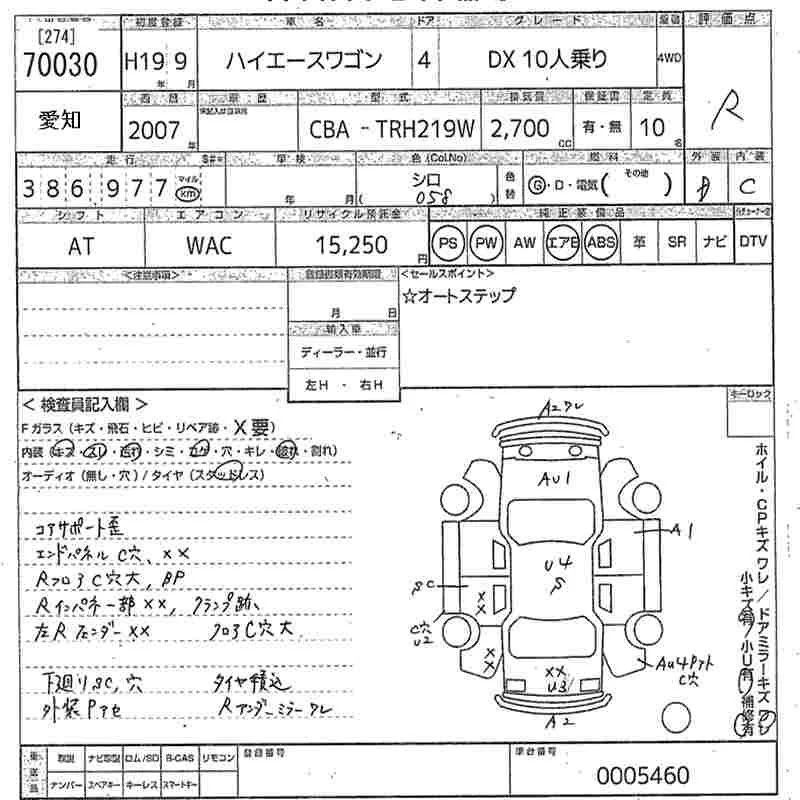 [274]
70030
初度登録 車名 ドア グレード
H19 9 ハイエースワゴン 4 DX 10人乗り 4WD
年 月
評価点
R
愛知
西暦 車歴 型式 排気量 保証書 定員
2007 年 CBA - TRH219W 2,700 CC 有・無 10 名
走行 車検 色(Col.No) 燃料 外装 内装
386,977 マイル km 年 月 シロ ( 058 ) 色替 G・D・電気( その他 ) D C
シフト エアコン リサイクル預託金 純正装備品
AT WAC 15,250 円 PS PW AW エアB ABS 革 SR ナビ DTV
<注意事項>
月 日
輸入車
ディーラー・並行
左H - 右H
<セールスポイント>
☆オートステップ
キーロック
<検査員記入欄>
Fガラス(キズ・飛石・ヒビ・リペア跡・X要)
内装(キズ・スレ・汚れ・シミ・コゲ・穴・キレ・破れ・割れ)
オーディオ(無し・穴)/タイヤ(スタッドレス)
コアサポート歪
エンドパネル C穴、××
RフロアC穴大, BP
Rインパネ一部××, クランプ跡、
左Rフェンダー×× フロアC穴大
下廻りSC,穴 タイヤ積込
外装Pアセ Rアンダーミラーワレ
A2ワレ
AU1
A1
U4
S
SC
××
C穴
U2
××
AU4Pアト
C穴
××
U3
A2
ホイル・CPキズワレ/ドアミラーキズワレ
小キズ有/小U有/補修有
取説 ナビ取説 ロム/SD B-CAS リモコン
ナンバー スペアキー キーレス スマートキー
登録番号
車台番号
0005460